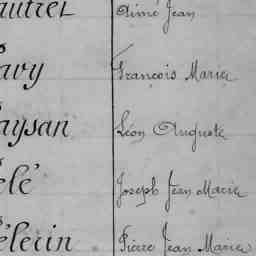 autret Aimé Jean
avy François Marie
aysan Léon Auguste
élé Joseph Jean Marie
élerin Pierre Jean Marie